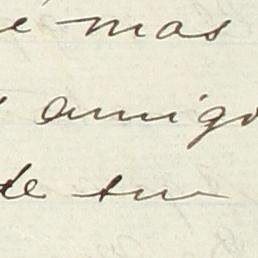 é mas
amigo
de su